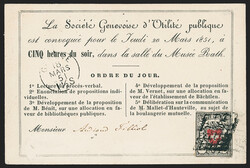 La Société Genevoise d'Utilité publique
est convoquée pour le Jeudi 20 Mars 1851, à
CINQ heures du soir, dans la salle du Musée Rath.
ORDRE DU JOUR.
1° Lecture du procès-verbal.
2° Enumération de propositions individuelles.
3° Développement de la proposition de M. Bénit, sur une allocation en faveur de bibliothèques populaires.
4° Développement de la proposition de M. Vernet, sur une allocation en faveur de l'établissement de Bächtelen.
5° Délibération sur la communication de M. Mallet-d'Hauteville, au sujet d'habitations d'ouvriers.
Monsieur